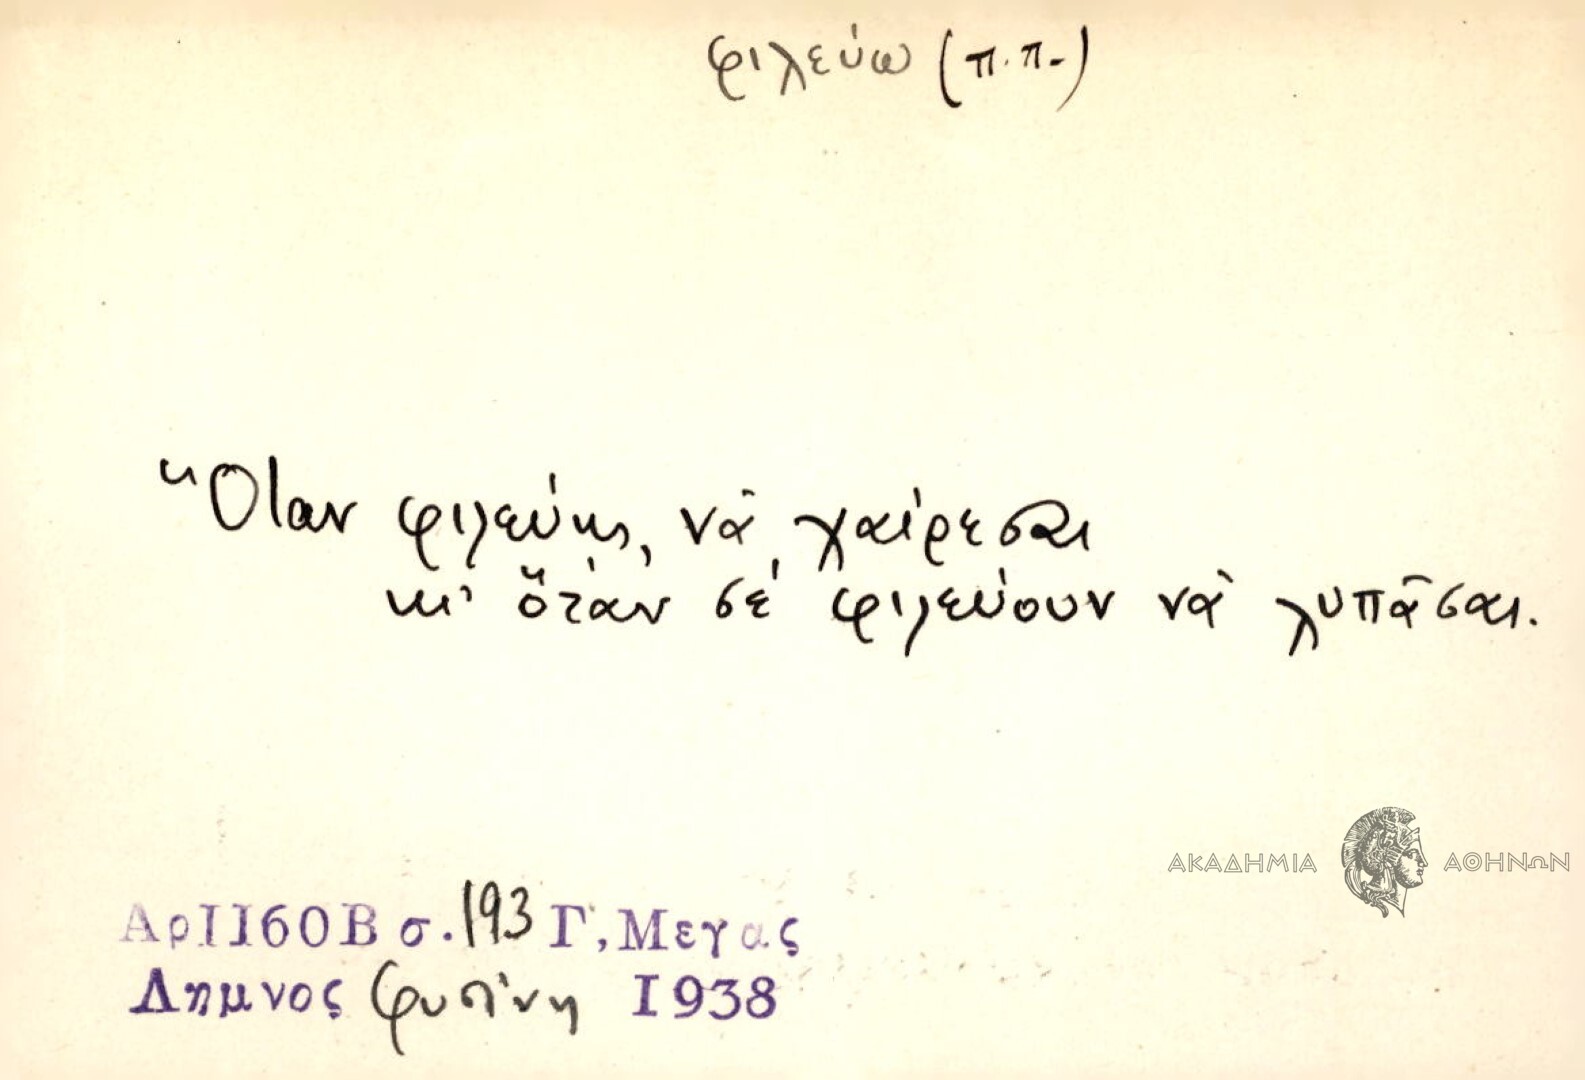 φιλεύω (π.π.)
Ὅταν φιλεύῃς, νὰ χαίρεσαι
κι' ὅταν σὲ φιλεύουν νὰ λυπᾶσαι.
ΑΚΑΔΗΜΙΑ ΑΘΗΝΩΝ
Αρ 1160 Β σ. 193 Γ. Μεγας
Λημνος 1938